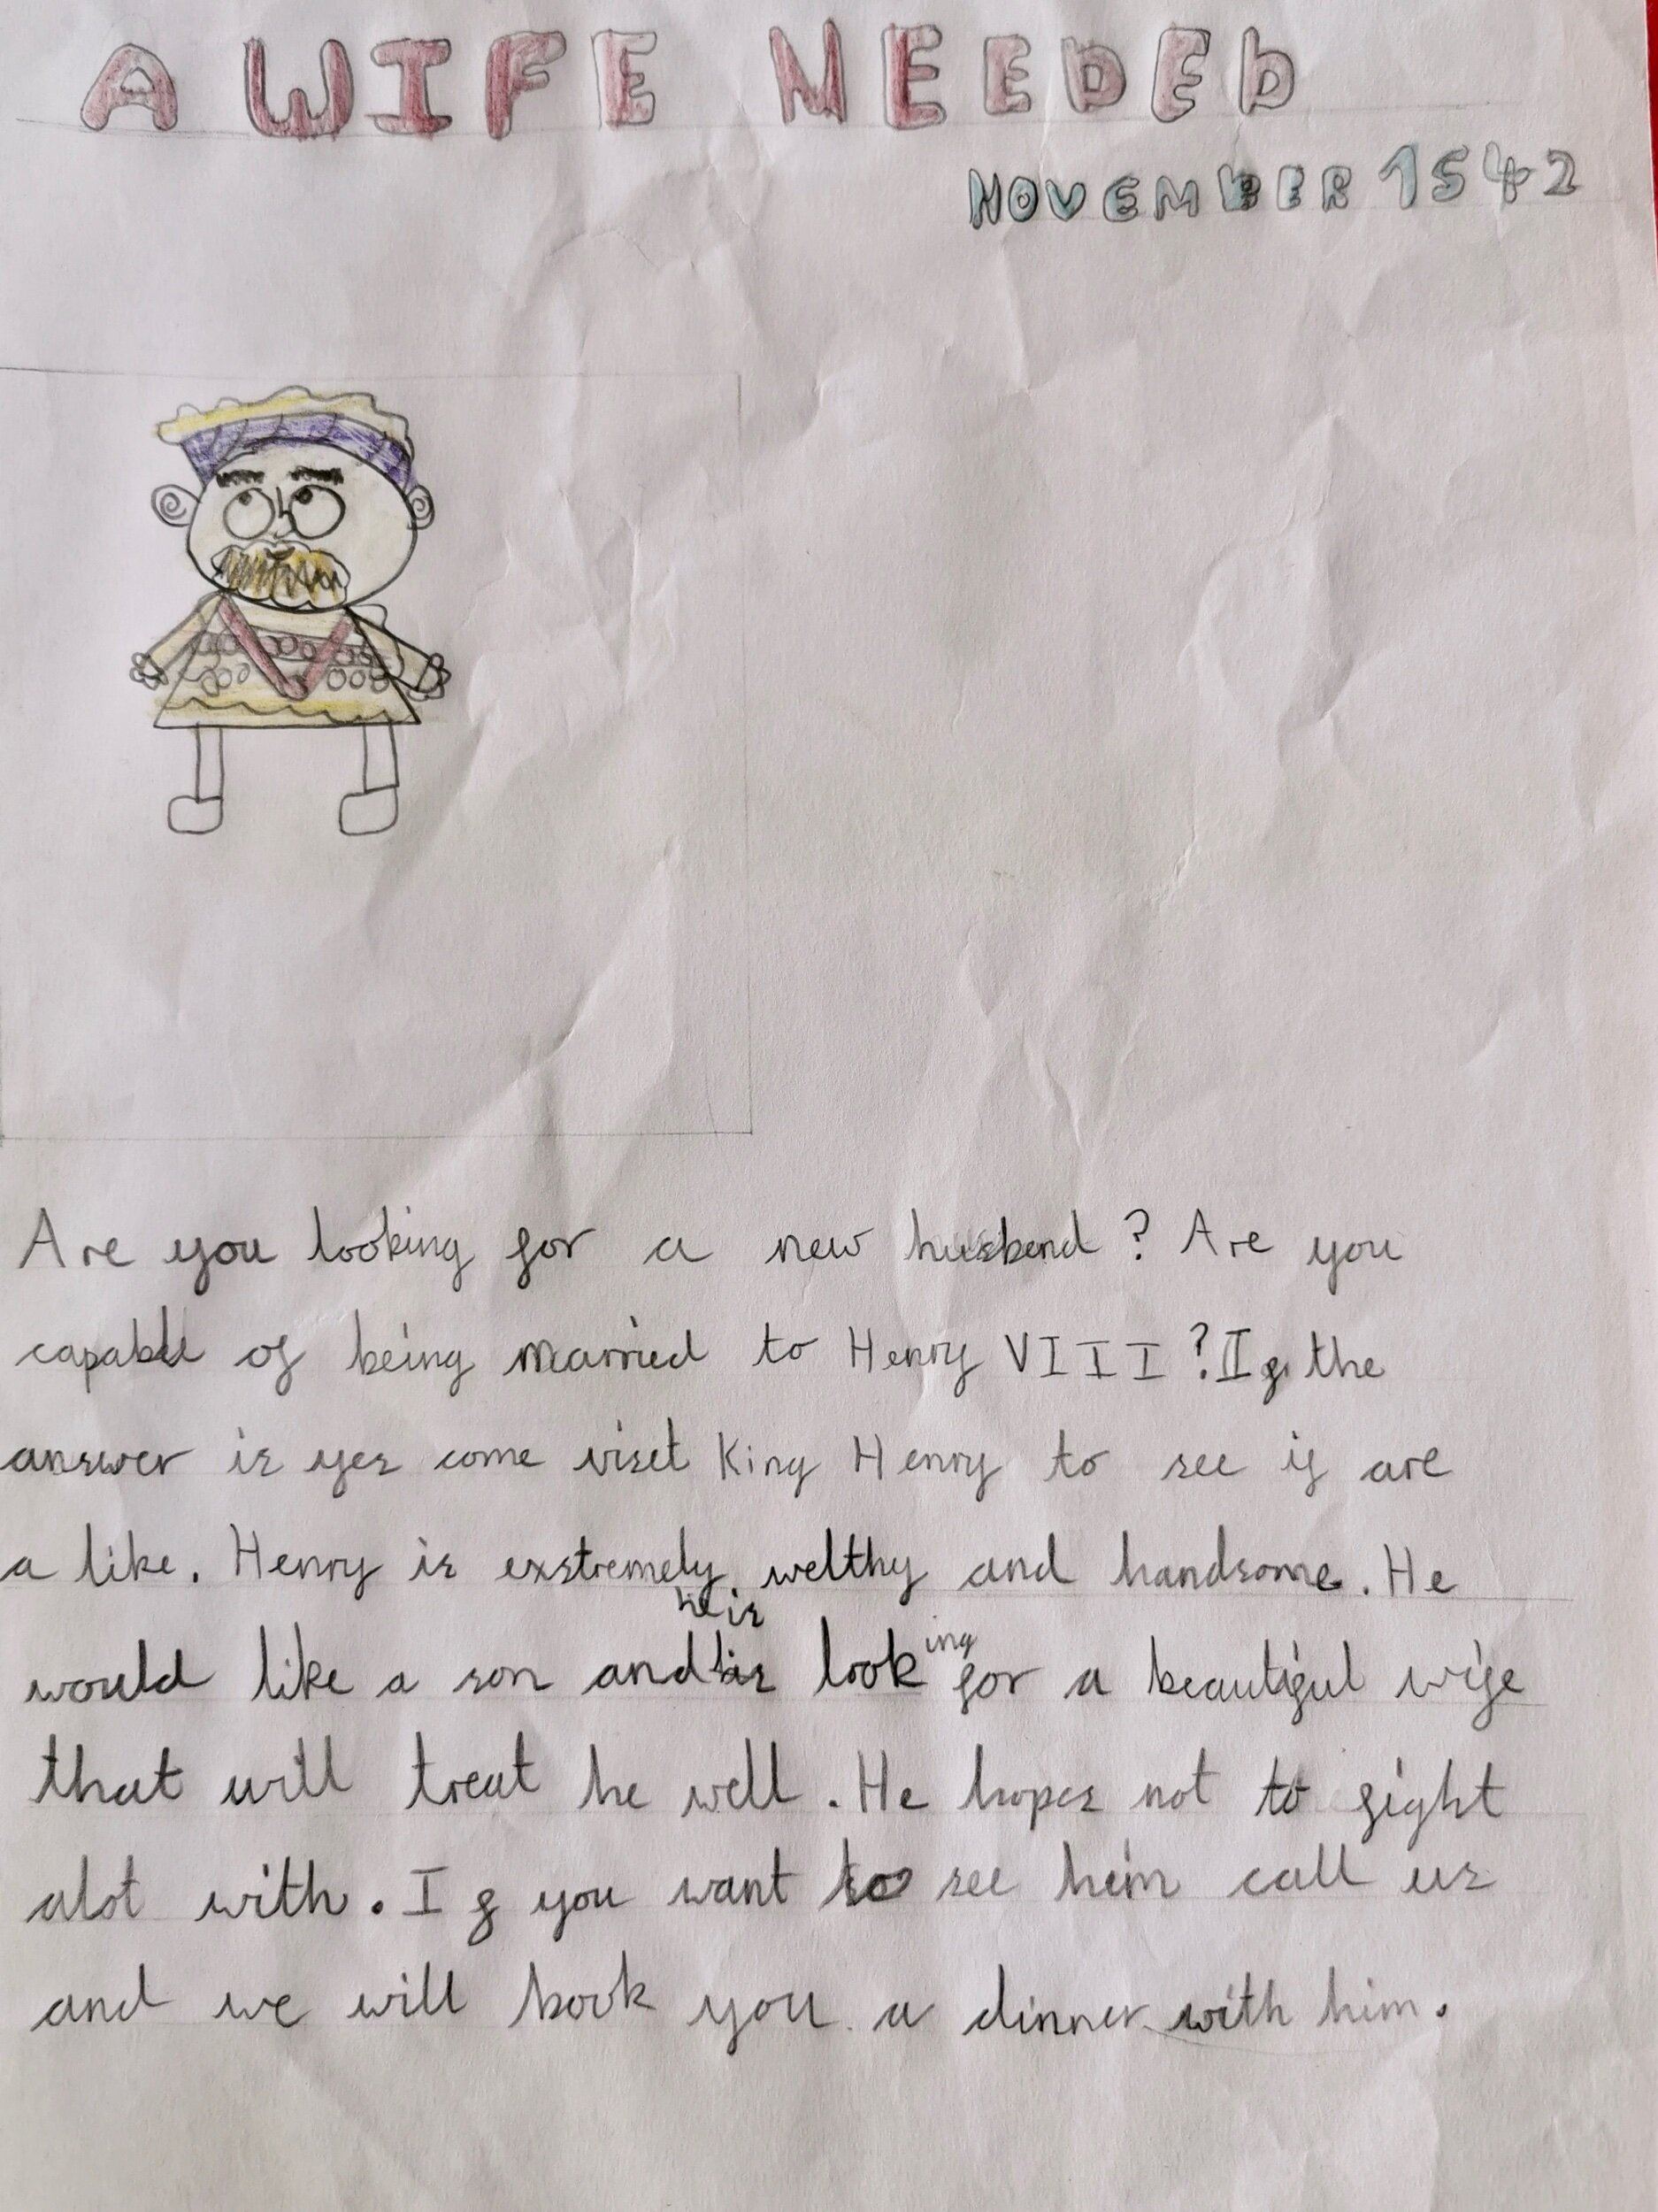 A WIFE NEEDED
NOVEMBER 1542
Are you looking for a new husbend? Are you
capable of being married to Henry VIII? If the
answer is yes come viset King Henry to see if are
a like. Henry is exstremely welthy and handsome. He
he is
would like a son and looking for a beautiful wife
that will treat he well. He hopes not to fight
alot with. If you want to see him call us
and we will book you a dinner with him.